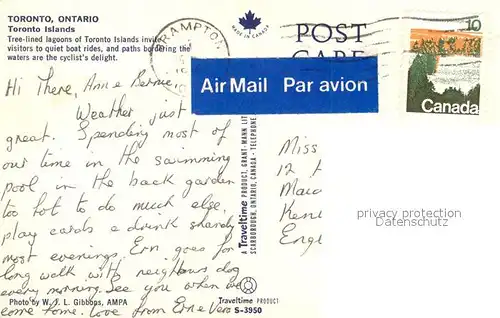 TORONTO, ONTARIO
Toronto Islands
Tree-lined lagoons of Toronto Islands invite
visitors to quiet boat rides, and paths bordering the
waters are the cyclist's delight.
BRAMPTON
MADE IN CANADA
POST
CARD
10
Canada
Air Mail Par avion
Hi There, Anne & Bernie,
Weather just
great. Spending most of
our time in the swimming
pool in the back garden
too hot to do much else,
play cards & drink shandy
most evenings. Ern goes for
long walk with neighbours dog
every morning. See you when we
come home. Love from Ern & Vera
Miss
12
Maid
Kent
Engl
A Traveltime PRODUCT, GRANT-MANN LIT
SCARBOROUGH, ONTARIO, CANADA - TELEPHONE
privacy protection
Datenschutz
Photo by W. J. L. Gibbons, AMPA
Traveltime PRODUCT
S-3950